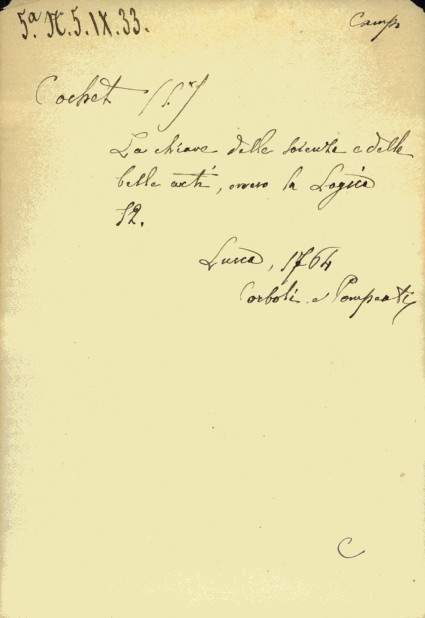 5.ª N.5.IX.33.
Campo
Cochet (S.r)
La chiave delle scienze e delle
belle arti, ovvero la Logica
12.
Lucca, 1764
Corboli e Pompeati
C